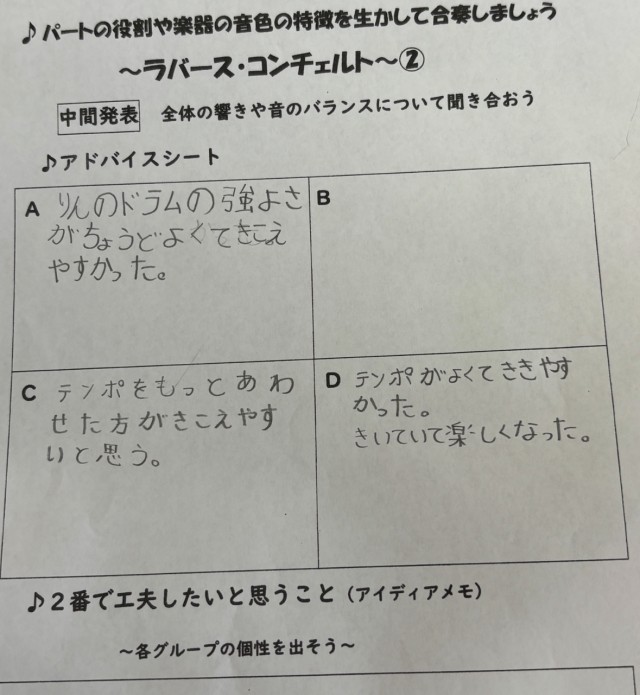 ♪パートの役割や楽器の音色の特徴を生かして合奏しましょう
～ラバース・コンチェルト～②
中間発表 全体の響きや音のバランスについて聞き合おう
♪アドバイスシート
A りんのドラムの強よさ
がちょうどよくてきこえ
やすかった。
B
C テンポをもっとあわ
せた方がきこえやす
いと思う。
D テンポがよくてききやす
かった。
きいていて楽しくなった。
♪２番で工夫したいと思うこと（アイディアメモ）
～各グループの個性を出そう～